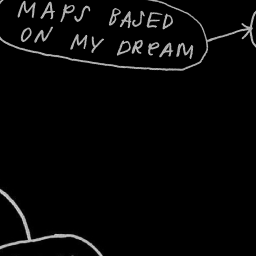 MAPS BASED
ON MY DREAM